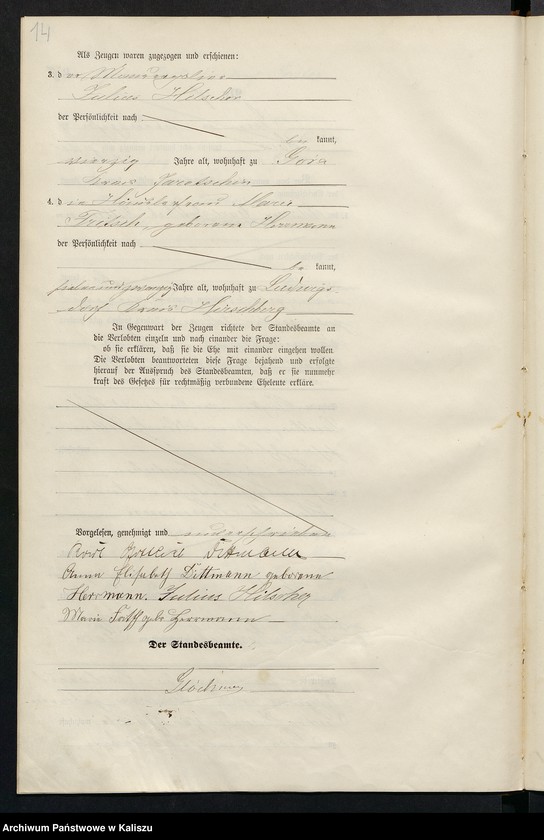 14
Als Zeugen waren zugezogen und erschienen:
3. d er
Julius Hilscher
der Persönlichkeit nach
be kannt,
vierzig Jahre alt, wohnhaft zu Gora
Kreis Jarotschin
4. d ie Häuslerfrau Marie
Fritsch, geborene Herrmann
der Persönlichkeit nach
be kannt,
Jahre alt, wohnhaft zu Ludwigs-
dorf Kreis Hirschberg
In Gegenwart der Zeugen richtete der Standesbeamte an
die Verlobten einzeln und nach einander die Frage:
ob sie erklären, daß sie die Ehe mit einander eingehen wollen.
Die Verlobten beantworteten diese Frage bejahend und erfolgte
hierauf der Ausspruch des Standesbeamten, daß er sie nunmehr
kraft des Gesetzes für rechtmäßig verbundene Eheleute erkläre.
Vorgelesen, genehmigt und unterschrieben
Dittmann
Anna Elisabeth Dittmann geborene
Herrmann. Julius Hilscher
Marie Fritsch geb. Herrmann
Der Standesbeamte.
Archiwum Państwowe w Kaliszu